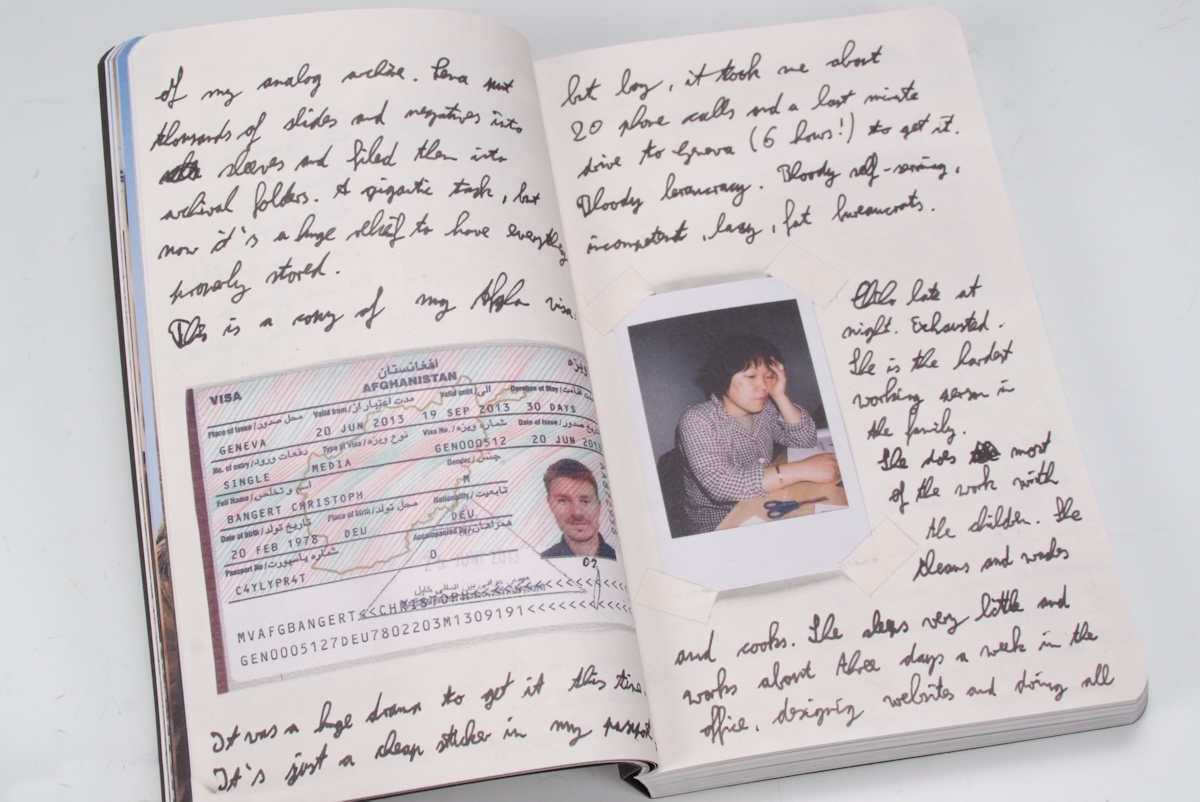 of my analog archive. Lena put
thousands of slides and negatives into
sleeves and filed them into
archival folders. A gigantic task, but
now it's a huge relief to have everything
properly stored.
This is a copy of my Afghan visa.
افغانستان
ویزه
VISA
AFGHANISTAN
Place of Issue / محل صدور
Valid from / مدت اعتبار از
Valid until / الی
Duration of Stay /
GENEVA
20 JUN 2013
19 SEP 2013
30 DAYS
No. of entry / دفعات ورود
Type of Visa / نوع ویزه
Visa No. / شماره ویزه
Date of Issue /
SINGLE
MEDIA
GEN000512
20 JUN 201
Full Name / اسم و تخلص
Gender / جنس
BANGERT CHRISTOPH
M
Date of birth / تاریخ تولد
Place of birth / محل تولد
Nationality / تابعیت
20 FEB 1978
DEU
DEU
Passport No / شماره پاسپورت
Accompanied by / همراهان
C4YLYPR4T
0
02
MVAFGBANGERT<<CHRISTOPH<<<<<<<<<
GEN0005127DEU7802203M1309191<<<<<<<<
It was a huge drama to get it this time.
It's just a cheap sticker in my passport
but boy, it took me about
20 phone calls and a last minute
drive to Geneva (6 hours!) to get it.
Bloody beraucracy. Bloody self-serving,
incompetent, lazy, fat bureaucrats.
late at
night. Exhausted.
She is the hardest
working person in
the family.
She does most
of the work with
the children. She
cleans and washes
and cooks. She sleeps very little and
works about three days a week in the
office, designing websites and doing all